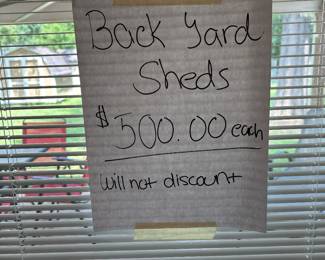 Back Yard
Sheds
$500.00 each
will not discount